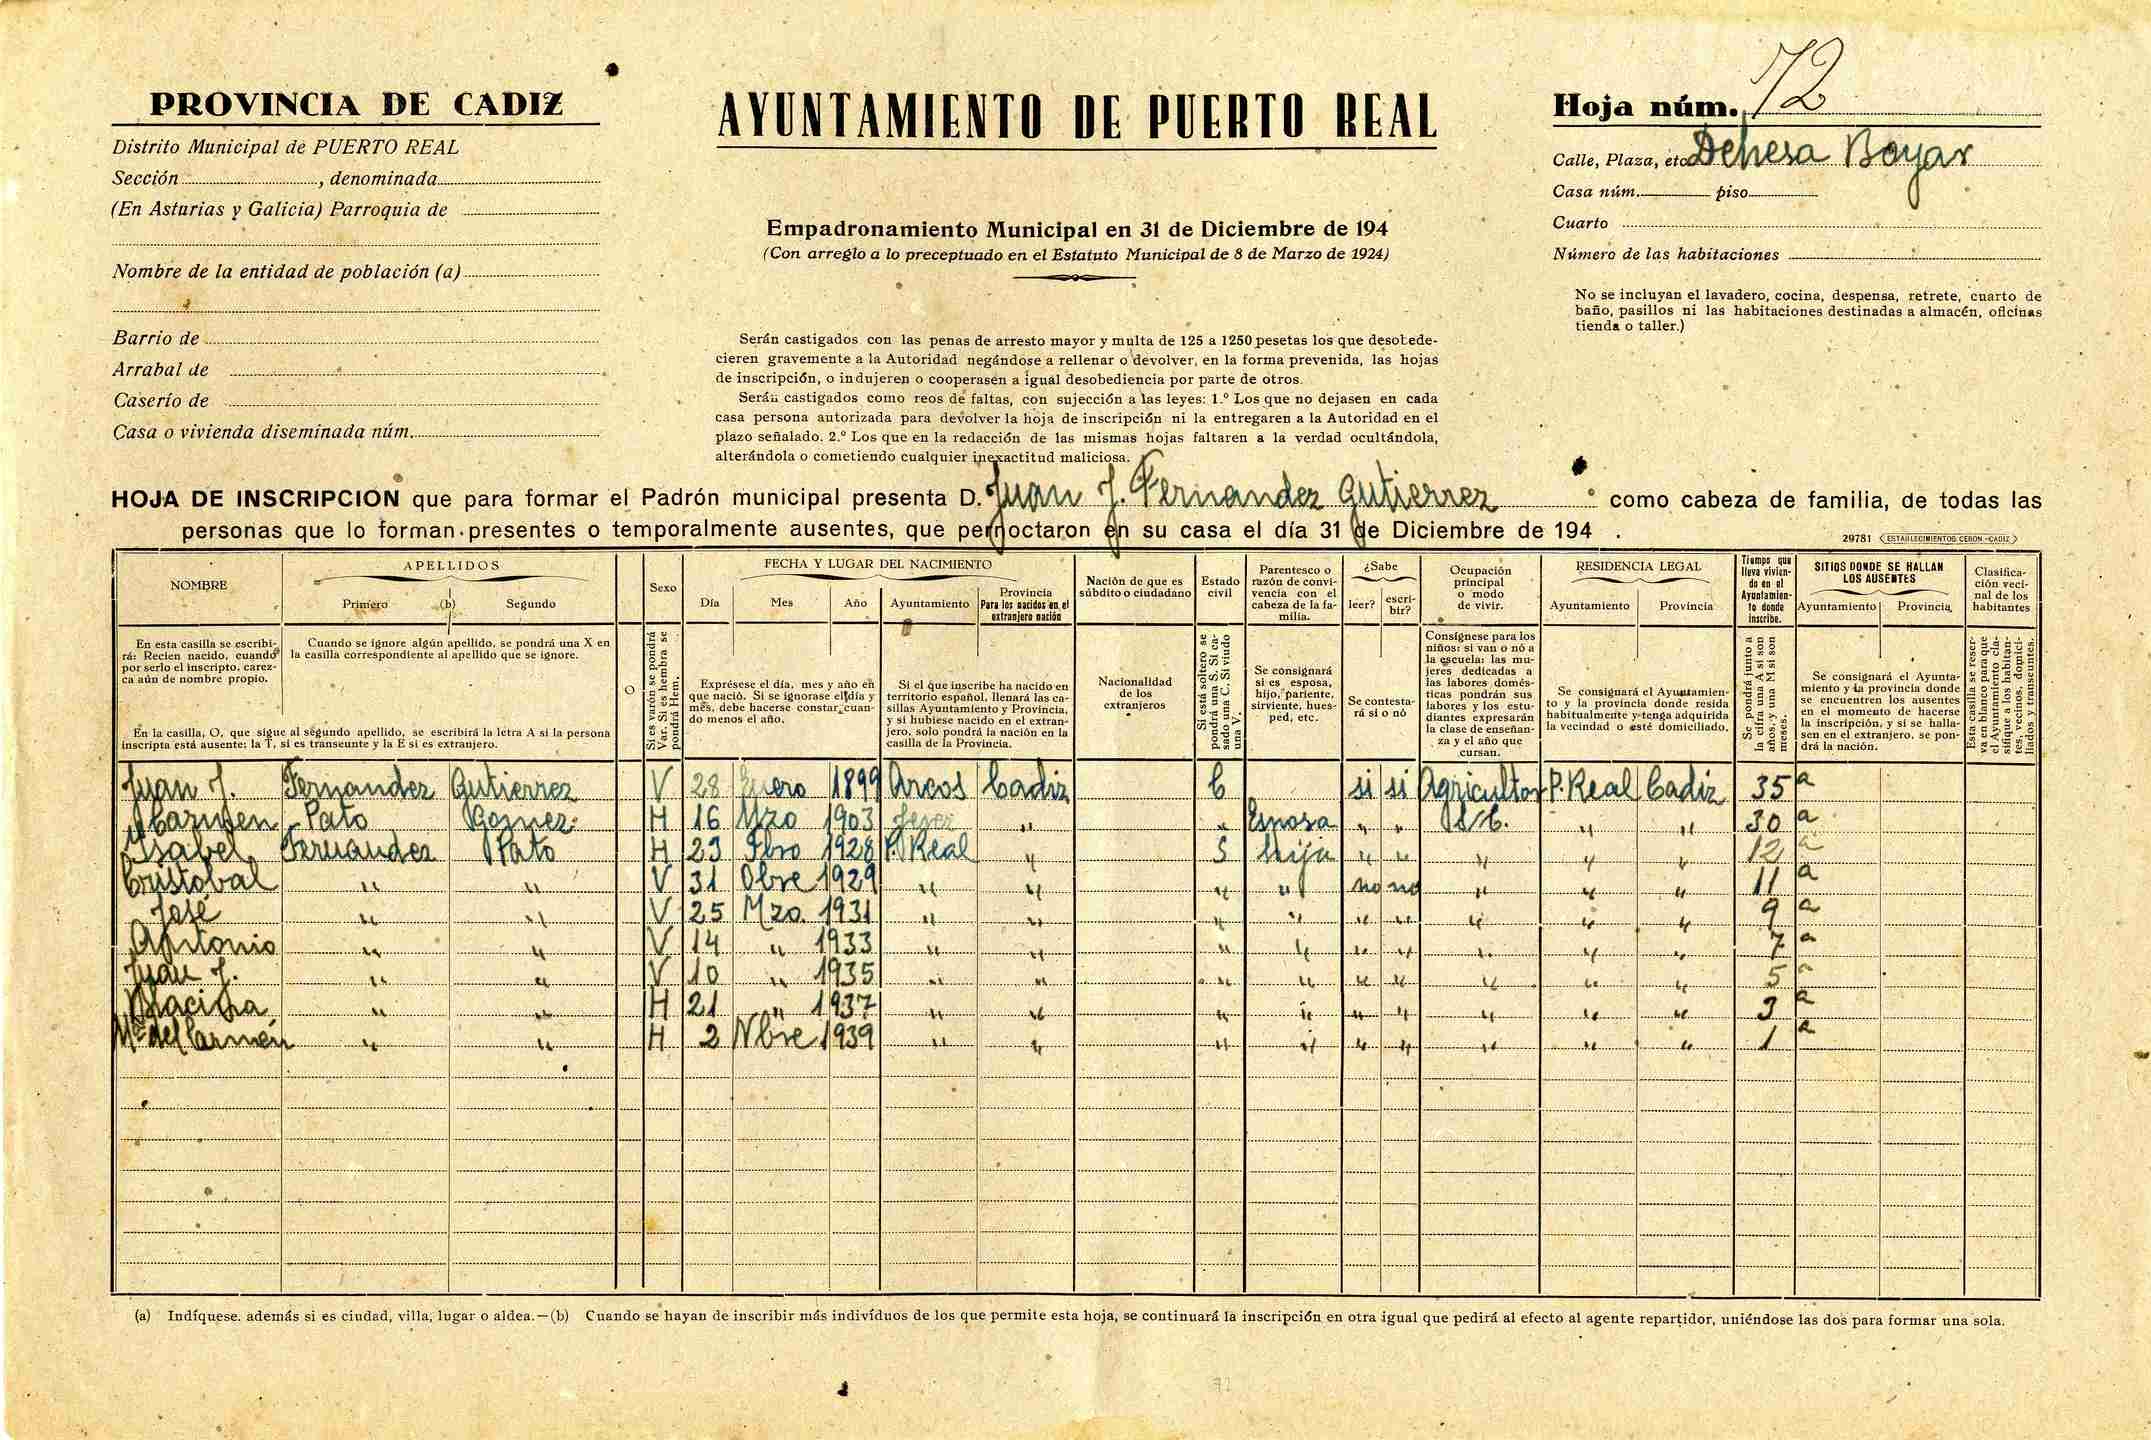 PROVINCIA DE CADIZ
Distrito Municipal de PUERTO REAL
Sección , denominada
(En Asturias y Galicia) Parroquia de
Nombre de la entidad de población (a)
Barrio de
Arrabal de
Caserío de
Casa o vivienda diseminada núm.
AYUNTAMIENTO DE PUERTO REAL
Empadronamiento Municipal en 31 de Diciembre de 194
(Con arreglo a lo preceptuado en el Estatuto Municipal de 8 de Marzo de 1924)
Serán castigados con las penas de arresto mayor y multa de 125 a 1250 pesetas los que desobede-
cieren gravemente a la Autoridad negándose a rellenar o devolver, en la forma prevenida, las hojas
de inscripción, o indujeren o cooperasen a igual desobediencia por parte de otros.
Serán castigados como reos de faltas, con sujección a las leyes: 1.º Los que no dejasen en cada
casa persona autorizada para devolver la hoja de inscripción ni la entregaren a la Autoridad en el
plazo señalado. 2.º Los que en la redacción de las mismas hojas faltaren a la verdad ocultándola,
alterándola o cometiendo cualquier inexactitud maliciosa.
Hoja núm. 72
Calle, Plaza, etc. Dehesa Boyar
Casa núm. piso
Cuarto
Número de las habitaciones
No se incluyan el lavadero, cocina, despensa, retrete, cuarto de
baño, pasillos ni las habitaciones destinadas a almacén, oficinas
tienda o taller.)
HOJA DE INSCRIPCION que para formar el Padrón municipal presenta D. Juan J. Fernandez Gutierrez como cabeza de familia, de todas las
personas que lo forman presentes o temporalmente ausentes, que pernoctaron en su casa el día 31 de Diciembre de 194 .
29781 ESTABLECIMIENTOS CERON.-CADIZ
NOMBRE
APELLIDOS
Primero (b) Segundo
Sexo
FECHA Y LUGAR DEL NACIMIENTO
Día Mes Año Ayuntamiento
Provincia
Para los nacidos en el
extranjero nación
Nación de que es
súbdito o ciudadano
Estado
civil
Parentesco o
razón de convi-
vencia con el
cabeza de la fa-
milia.
¿Sabe
leer? escri-
bir?
Ocupación
principal
o modo
de vivir.
RESIDENCIA LEGAL
Ayuntamiento Provincia
Tiempo que
lleva vivien-
do en el
Ayuntamien-
to donde
inscribe.
SITIOS DONDE SE HALLAN
LOS AUSENTES
Ayuntamiento Provincia
Clasifica-
ción veci-
nal de los
habitantes
En esta casilla se escribi-
rá: Recien nacido, cuando
por serlo el inscripto, carez-
ca aún de nombre propio.
Cuando se ignore algún apellido, se pondrá una X en
la casilla correspondiente al apellido que se ignore.
En la casilla, O, que sigue al segundo apellido, se escribirá la letra A si la persona
inscripta está ausente: la T, si es transeunte y la E si es extranjero.
O
Si es varón se pondrá
Var. Si es hembra se
pondrá Hem.
Exprésese el día, mes y año en
que nació. Si se ignorase el día y
mes, debe hacerse constar cuan-
do menos el año.
Si el que inscribe ha nacido en
territorio español, llenará las ca-
sillas Ayuntamiento y Provincia,
y si hubiese nacido en el extran-
jero, solo pondrá la nación en la
casilla de la Provincia.
Nacionalidad
de los
extranjeros
Si está soltero se
pondrá una S. Si ca-
sado una C. Si viudo
una V.
Se consignará
si es esposa,
hijo, pariente,
sirviente, hues-
ped, etc.
Se contesta-
rá si o nó
Consígnese para los
niños: si van o nó a
la escuela: las mu-
jeres dedicadas a
las labores domés-
ticas pondrán sus
labores y los estu-
diantes expresarán
la clase de enseñan-
za y el año que
cursan.
Se consignará el Ayuntamien-
to y la provincia donde resida
habitualmente y tenga adquirida
la vecindad o esté domiciliado.
Se pondrá junto a
la cifra una A si son
años, y una M si son
meses.
Se consignará el Ayunta-
miento y la provincia donde
se encuentren los ausentes
en el momento de hacerse
la inscripción, y si se halla-
sen en el extranjero, se pon-
drá la nación.
Esta casilla se reser-
va en blanco para que
el Ayuntamiento cla-
sifique a los habitan-
tes, vecinos, domici-
liados y transeuntes.
Juan J. Fernandez Gutierrez V 28 Enero 1899 Arcos Cadiz C si si Agricultor P. Real Cadiz 35 a
Carmen Pato Gomez H 16 Mzo 1903 Jerez " " Esposa " " S/C. " " 30 a
Isabel Fernandez Pato H 23 Fbro 1928 P. Real " S hija " " " " " 12 a
Cristobal " " V 31 Obre 1929 " " " " no no " " " 11 a
José " " V 25 Mzo. 1931 " " " " " " " " " 9 a
Antonio " " V 14 " 1933 " " " " " " " " " 7 a
Juan J. " " V 10 " 1935 " " " " " " " " " 5 a
" " H 21 " 1937 " " " " " " " " " 3 a
Mª del Carmen " " H 2 Nbre 1939 " " " " " " " " " 1 a
(a) Indíquese. además si es ciudad, villa, lugar o aldea.—(b) Cuando se hayan de inscribir más indivíduos de los que permite esta hoja, se continuará la inscripción en otra igual que pedirá al efecto al agente repartidor, uniéndose las dos para formar una sola.
72